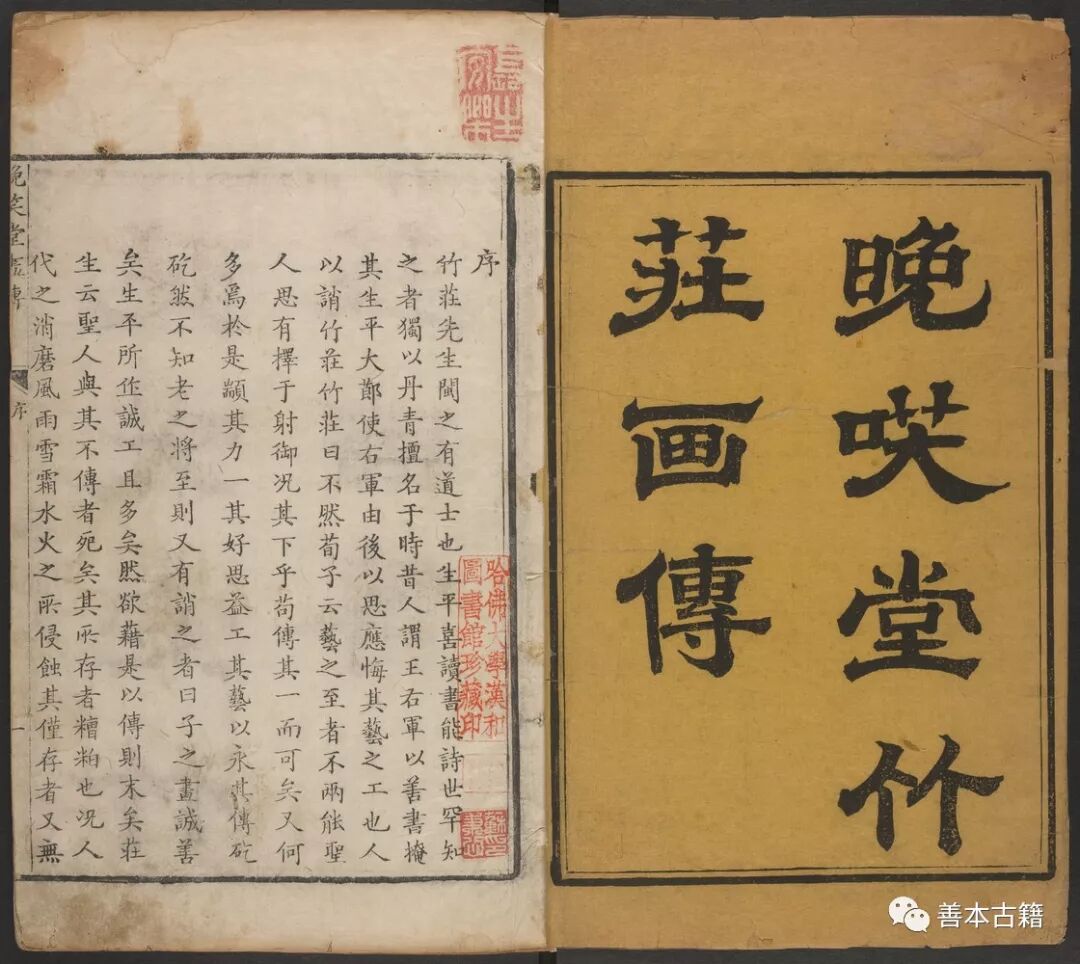 晚咲堂竹
莊画傳
序
竹莊先生閩之有道士也生平喜讀書能詩世罕知
之者獨以丹青擅名于時昔人謂王右軍以善書掩
其生平大節使右軍由後以思應悔其藝之工也人
以誚竹莊竹莊曰不然荀子云藝之至者不兩能聖
人思有擇于射御況其下乎苟傳其一而可矣又何
多焉於是顓其力一其好思益工其藝以永其傳矻
矻然不知老之將至則又有誚之者曰子之畫誠善
矣生平所作誠工且多矣然欲藉是以傳則末矣莊
生云聖人與其不傳者死矣其所存者糟粕也况人
代之消磨風雨雪霜水火之所侵蝕其僅存者又無
晚笑堂畫傳
序
一
哈佛大學漢和
圖書館珍藏印
善本古籍